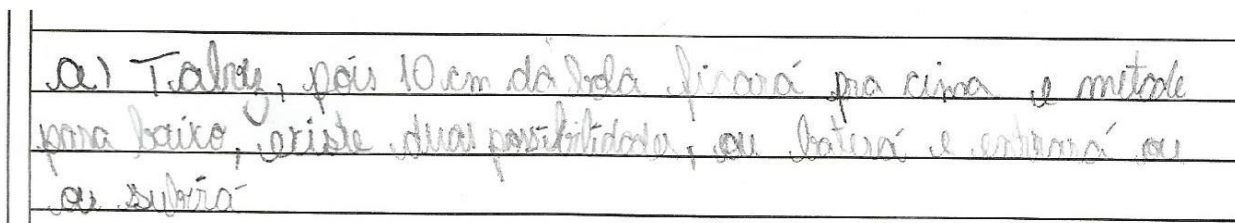 a) Talvez, pois 10 cm da bola ficará pra cima e metade
para baixo, existe duas possibilidades, ou baterá e entrará ou
ou subirá